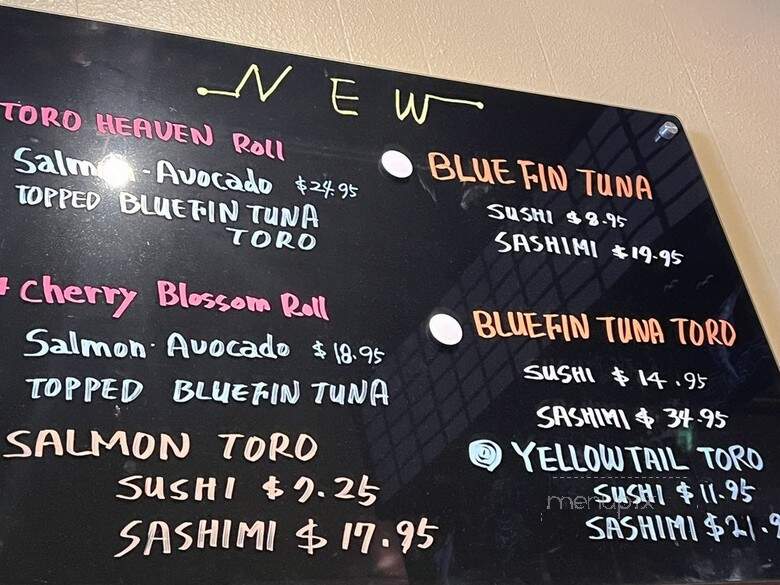 NEW
TORO HEAVEN Roll
Salmon - Avocado $24.95
TOPPED BLUEFIN TUNA
TORO
Cherry Blossom Roll
Salmon · Avocado $18.95
TOPPED BLUEFIN TUNA
SALMON TORO
SUSHI
SASHIMI $17.95
BLUEFIN TUNA
SUSHI $8.95
SASHIMI $19.95
BLUEFIN TUNA TORO
SUSHI $14.95
SASHIMI $34.95
YELLOWTAIL TORO
SUSHI $11.95
SASHIMI $21.9
menupix